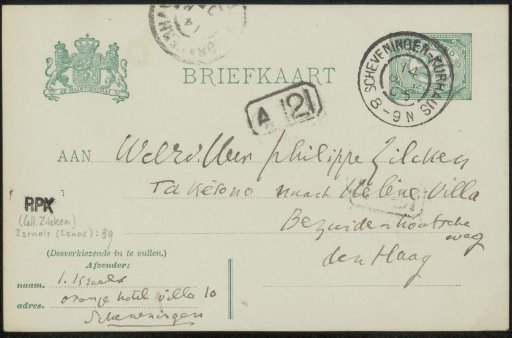 BRIEFKAART
SCHEVENINGEN-KURHAUS
14
8-9 N
A 2
AAN Weled. Heer Philippe Zilcken
naast Hélène-Villa
Bezuidenhoutsche
weg
den Haag
RPK
(Coll. Zilcken)
Israels (Isaac): 89
(Desverkiezende in te vullen.)
Afzender:
naam. I. Israels
adres. oranje hotel villa 10
Scheveningen